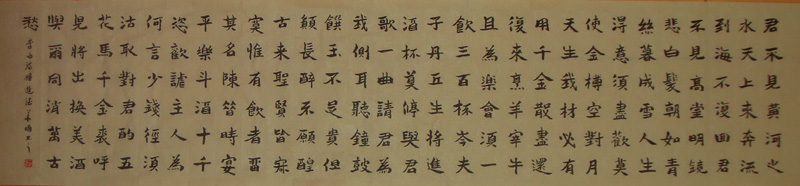 君不見黃河之
水天上來奔流
到海不復回君
不見高堂明鏡
悲白髮朝如青
絲暮成雪人生
得意須盡歡莫
使金樽空對月
天生我材必有
用千金散盡還
復來烹羊宰牛
且為樂會須一
飲三百杯岑夫
子丹丘生將進
酒杯莫停與君
歌一曲請君為
我側耳聽鐘鼓
饌玉不足貴但
願長醉不願醒
古來聖賢皆寂
寞惟有飲者留
其名陳昔時宴
平樂斗酒十千
恣歡謔主人為
何言少錢徑須
沽取對君酌五
花馬千金裘呼
兒將出換美酒
與爾同消萬古
愁
李白將進酒